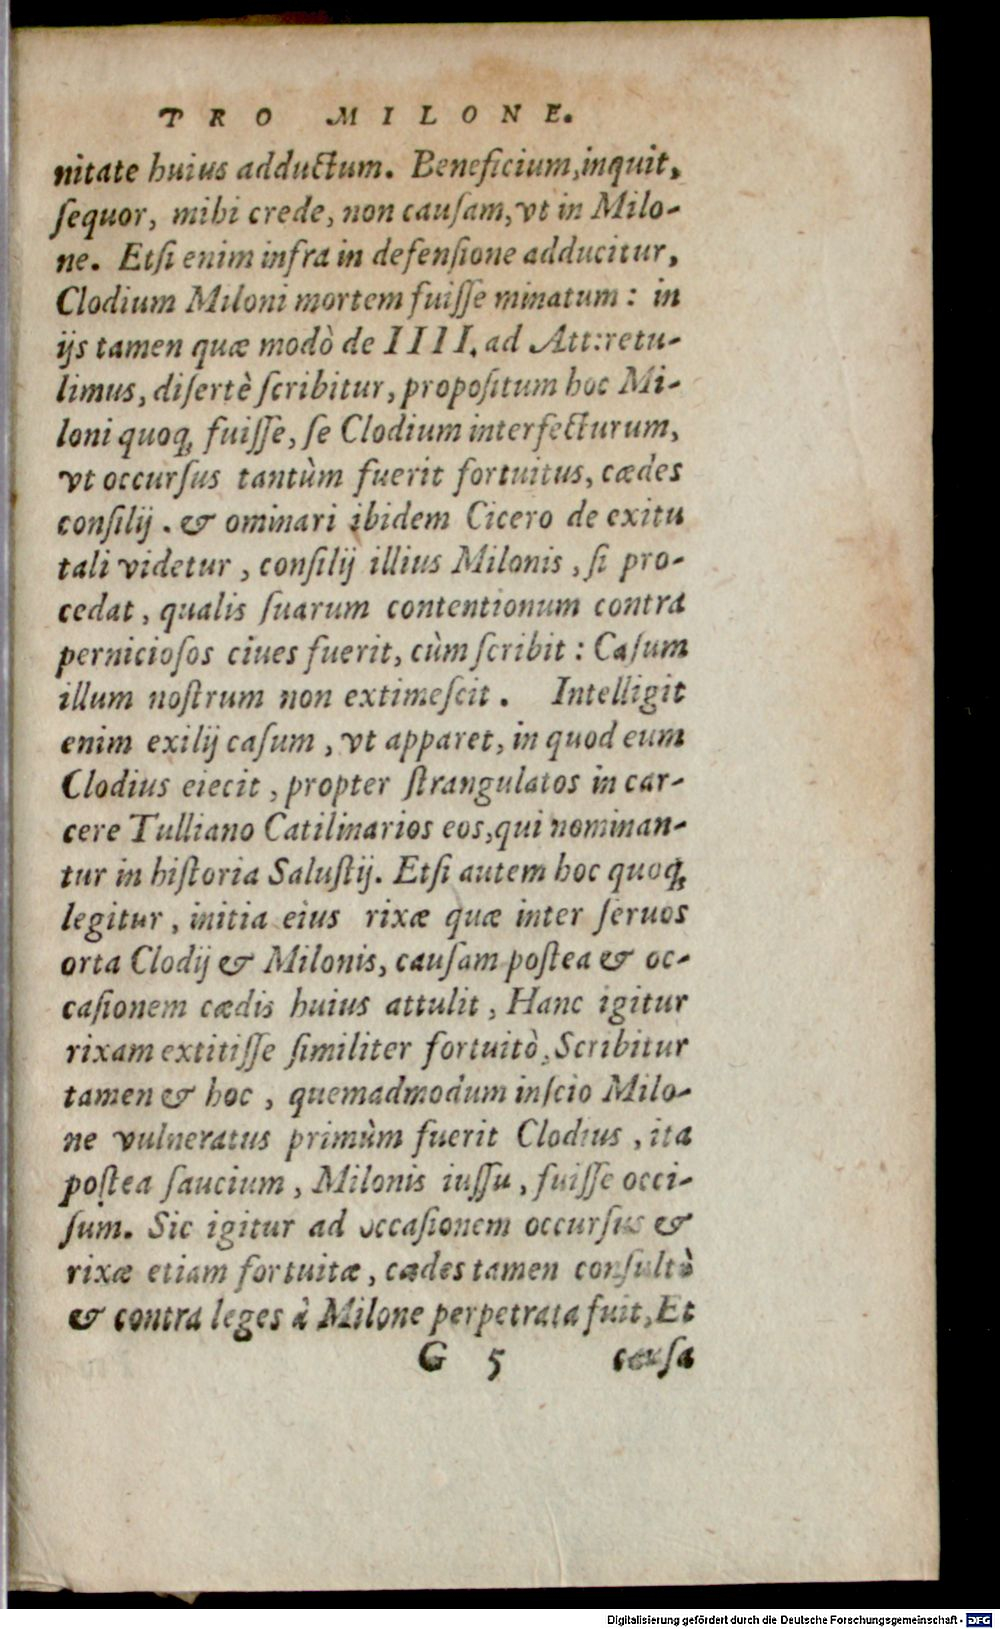 PRO MILONE.
nitate huius adductum. Beneficium, inquit,
ſequor, mihi crede, non cauſam, vt in Milo-
ne. Etſi enim infra in defenſione adducitur,
Clodium Miloni mortem fuiſſe minatum: in
ijs tamen quæ modò de IIII. ad Att: retu-
limus, diſertè ſcribitur, propoſitum hoc Mi-
loni quoq; fuiſſe, ſe Clodium interfecturum,
vt occurſus tantùm fuerit fortuitus, cædes
conſilij. & ominari ibidem Cicero de exitu
tali videtur, conſilij illius Milonis, ſi pro-
cedat, qualis ſuarum contentionum contra
pernicioſos ciues fuerit, cùm ſcribit: Caſum
illum noſtrum non extimeſcit. Intelligit
enim exilij caſum, vt apparet, in quod eum
Clodius eiecit, propter ſtrangulatos in car-
cere Tulliano Catilinarios eos, qui nominan-
tur in hiſtoria Saluſtij. Etſi autem hoc quoq;
legitur, initia eius rixæ quæ inter ſeruos
orta Clodij & Milonis, cauſam poſtea & oc-
caſionem cædis huius attulit, Hanc igitur
rixam extitiſſe ſimiliter fortuitò, Scribitur
tamen & hoc, quemadmodum inſcio Milo-
ne vulneratus primùm fuerit Clodius, ita
poſtea ſaucium, Milonis iuſſu, fuiſſe occi-
ſum. Sic igitur ad occaſionem occurſus &
rixæ etiam fortuitæ, cædes tamen conſultò
& contra leges à Milone perpetrata fuit, Et
G 5 cauſa
Digitalisierung gefördert durch die Deutsche Forschungsgemeinschaft - DFG